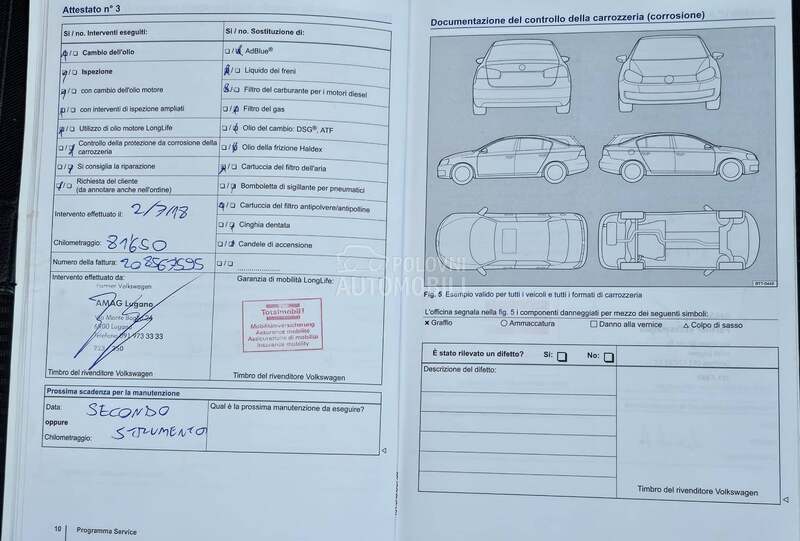 Attestato n° 3
Si / no. Interventi eseguiti:
Cambio dell'olio
Ispezione
con cambio dell'olio motore
con interventi di ispezione ampliati
Utilizzo di olio motore LongLife
Controllo della protezione da corrosione della carrozzeria
Si consiglia la riparazione
Richiesta del cliente
(da annotare anche nell'ordine)
Intervento effettuato il: 2/7/18
Chilometraggio: 81'650
Numero della fattura: 208567595
Si / no. Sostituzione di:
AdBlue®
Liquido dei freni
Filtro del carburante per i motori diesel
Filtro del gas
Olio del cambio: DSG®, ATF
Olio della frizione Haldex
Cartuccia del filtro dell'aria
Bomboletta di sigillante per pneumatici
Cartuccia del filtro antipolvere/antipolline
Cinghia dentata
Candele di accensione
Intervento effettuato da:
Partner Volkswagen
AMAG Lugano
Via Monte Boglia 24
6900 Lugano
Telefono 091 973 33 33
Timbro del rivenditore Volkswagen
Garanzia di mobilità LongLife:
Totalmobil!
Mobilitätsversicherung
Assurance mobilité
Assicurazione di mobilità
Insurance mobility
Timbro del rivenditore Volkswagen
POLOVNI
AUTOMOBILI
Prossima scadenza per la manutenzione
Data: SECONDO
oppure
Chilometraggio: STRUMENTO
Qual è la prossima manutenzione da eseguire?
10 Programma Service
Documentazione del controllo della carrozzeria (corrosione)
B1T-0449
Fig. 5 Esempio valido per tutti i veicoli e tutti i formati di carrozzeria
L'officina segnala nella fig. 5 i componenti danneggiati per mezzo dei seguenti simboli:
× Graffio ○ Ammaccatura □ Danno alla vernice △ Colpo di sasso
È stato rilevato un difetto? Sì: □ No: □
Descrizione del difetto:
Timbro del rivenditore Volkswagen